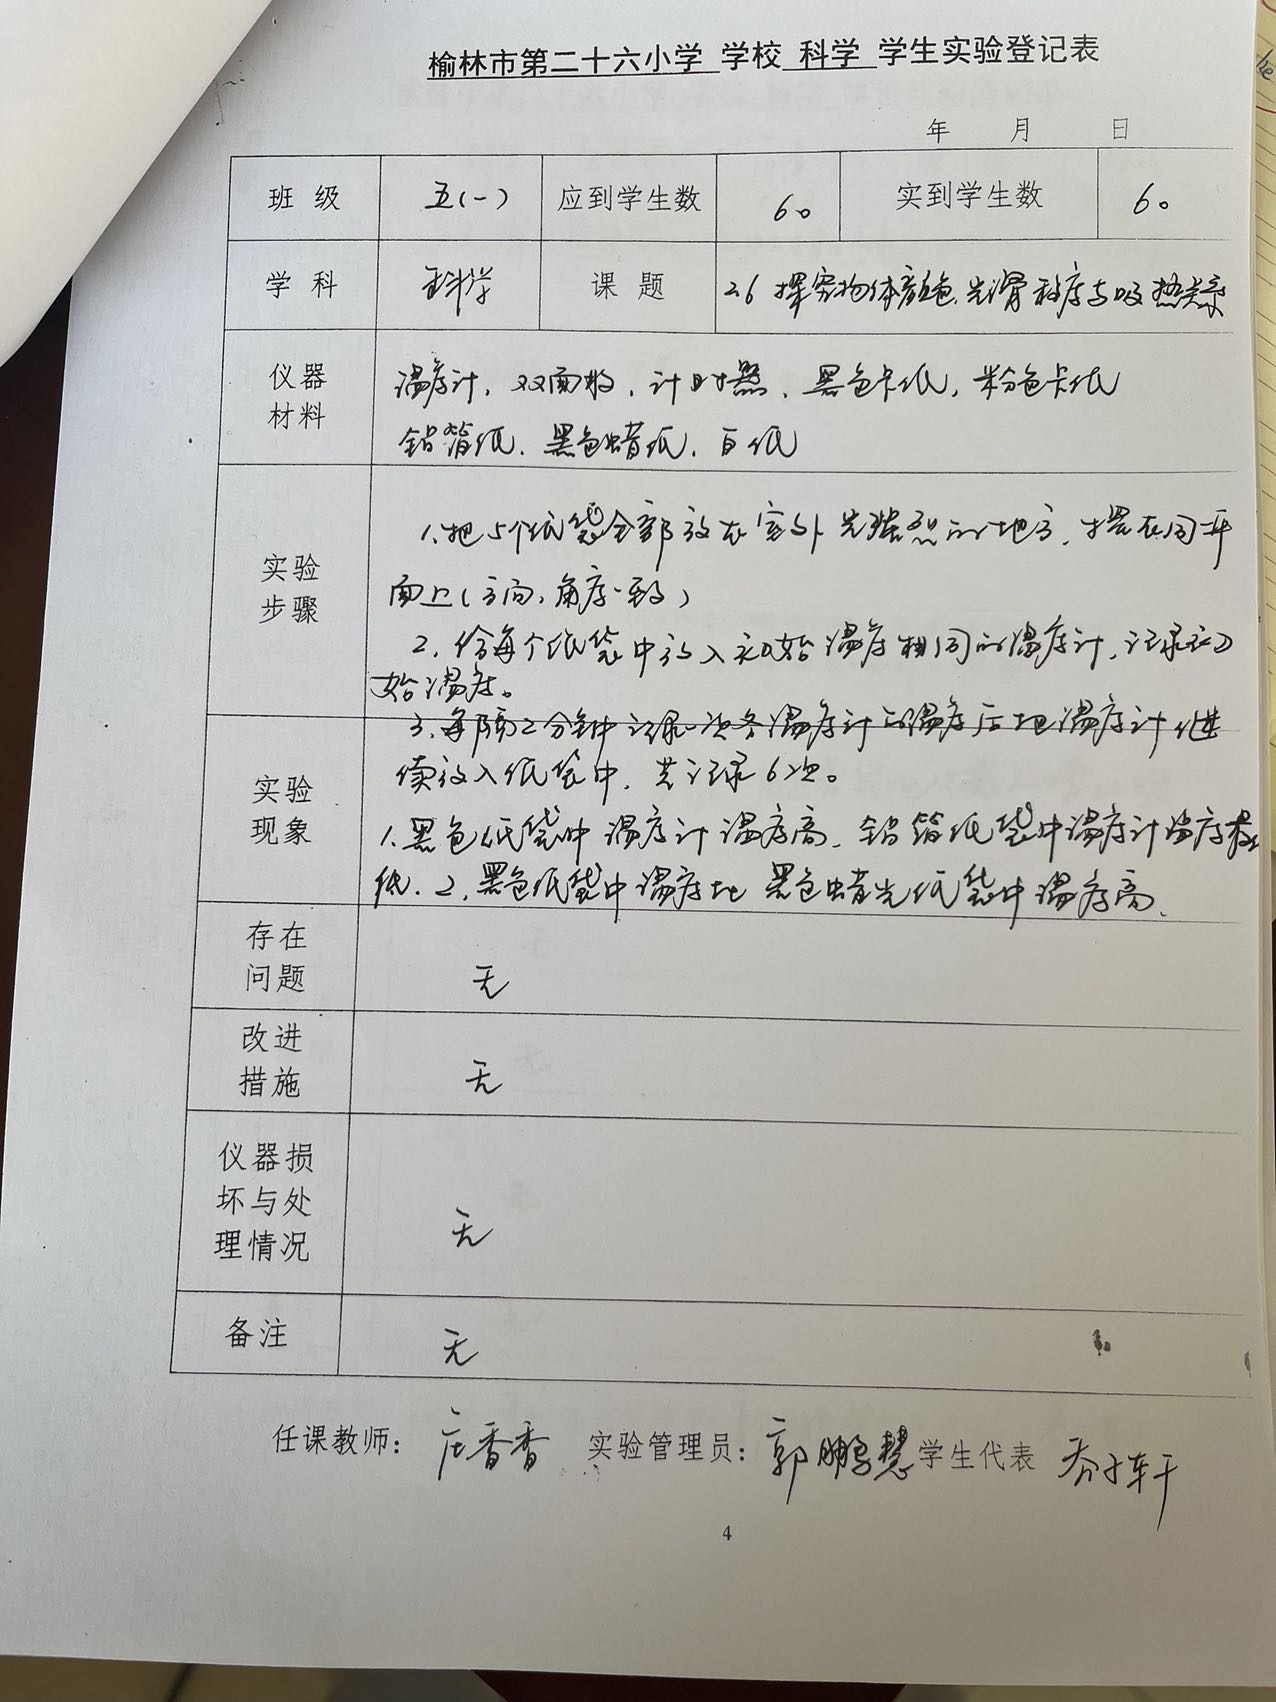 榆林市第二十六小学 学校 科学 学生实验登记表
年 月 日
班级 五(一) 应到学生数 60 实到学生数 60
学科 科学 课题 26 探究物体颜色、光滑程度与吸热关系
仪器材料 温度计，双面胶，计时器、黑色卡纸，粉色卡纸
铝箔纸、黑色蜡纸、白纸
实验步骤 1、把5个纸袋全部放在室外光强烈的地方，摆在同平
面上（方向、角度一致）
2、给每个纸袋中放入初始温度相同的温度计，记录初
始温度。
3、每隔2分钟记录一次各温度计的温度后把温度计继
续放入纸袋中，共记录6次。
实验现象 1、黑色纸袋中温度计温度高、铝箔纸袋中温度计温度最
低、2、黑色纸袋中温度比黑色蜡光纸袋中温度高、
存在问题 无
改进措施 无
仪器损坏与处理情况 无
备注 无
任课教师： 庄香香 实验管理员： 郭鹏慧 学生代表
4